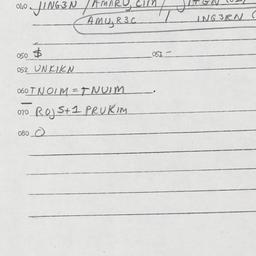 040. JING3N / AMARU, CIM /
AMU, R3C / ING3RN
050 $ 051 -
052 UNKIKN
060 TNOIM = TNUIM .
070 ROJ S+1 PRUKIM
080 O